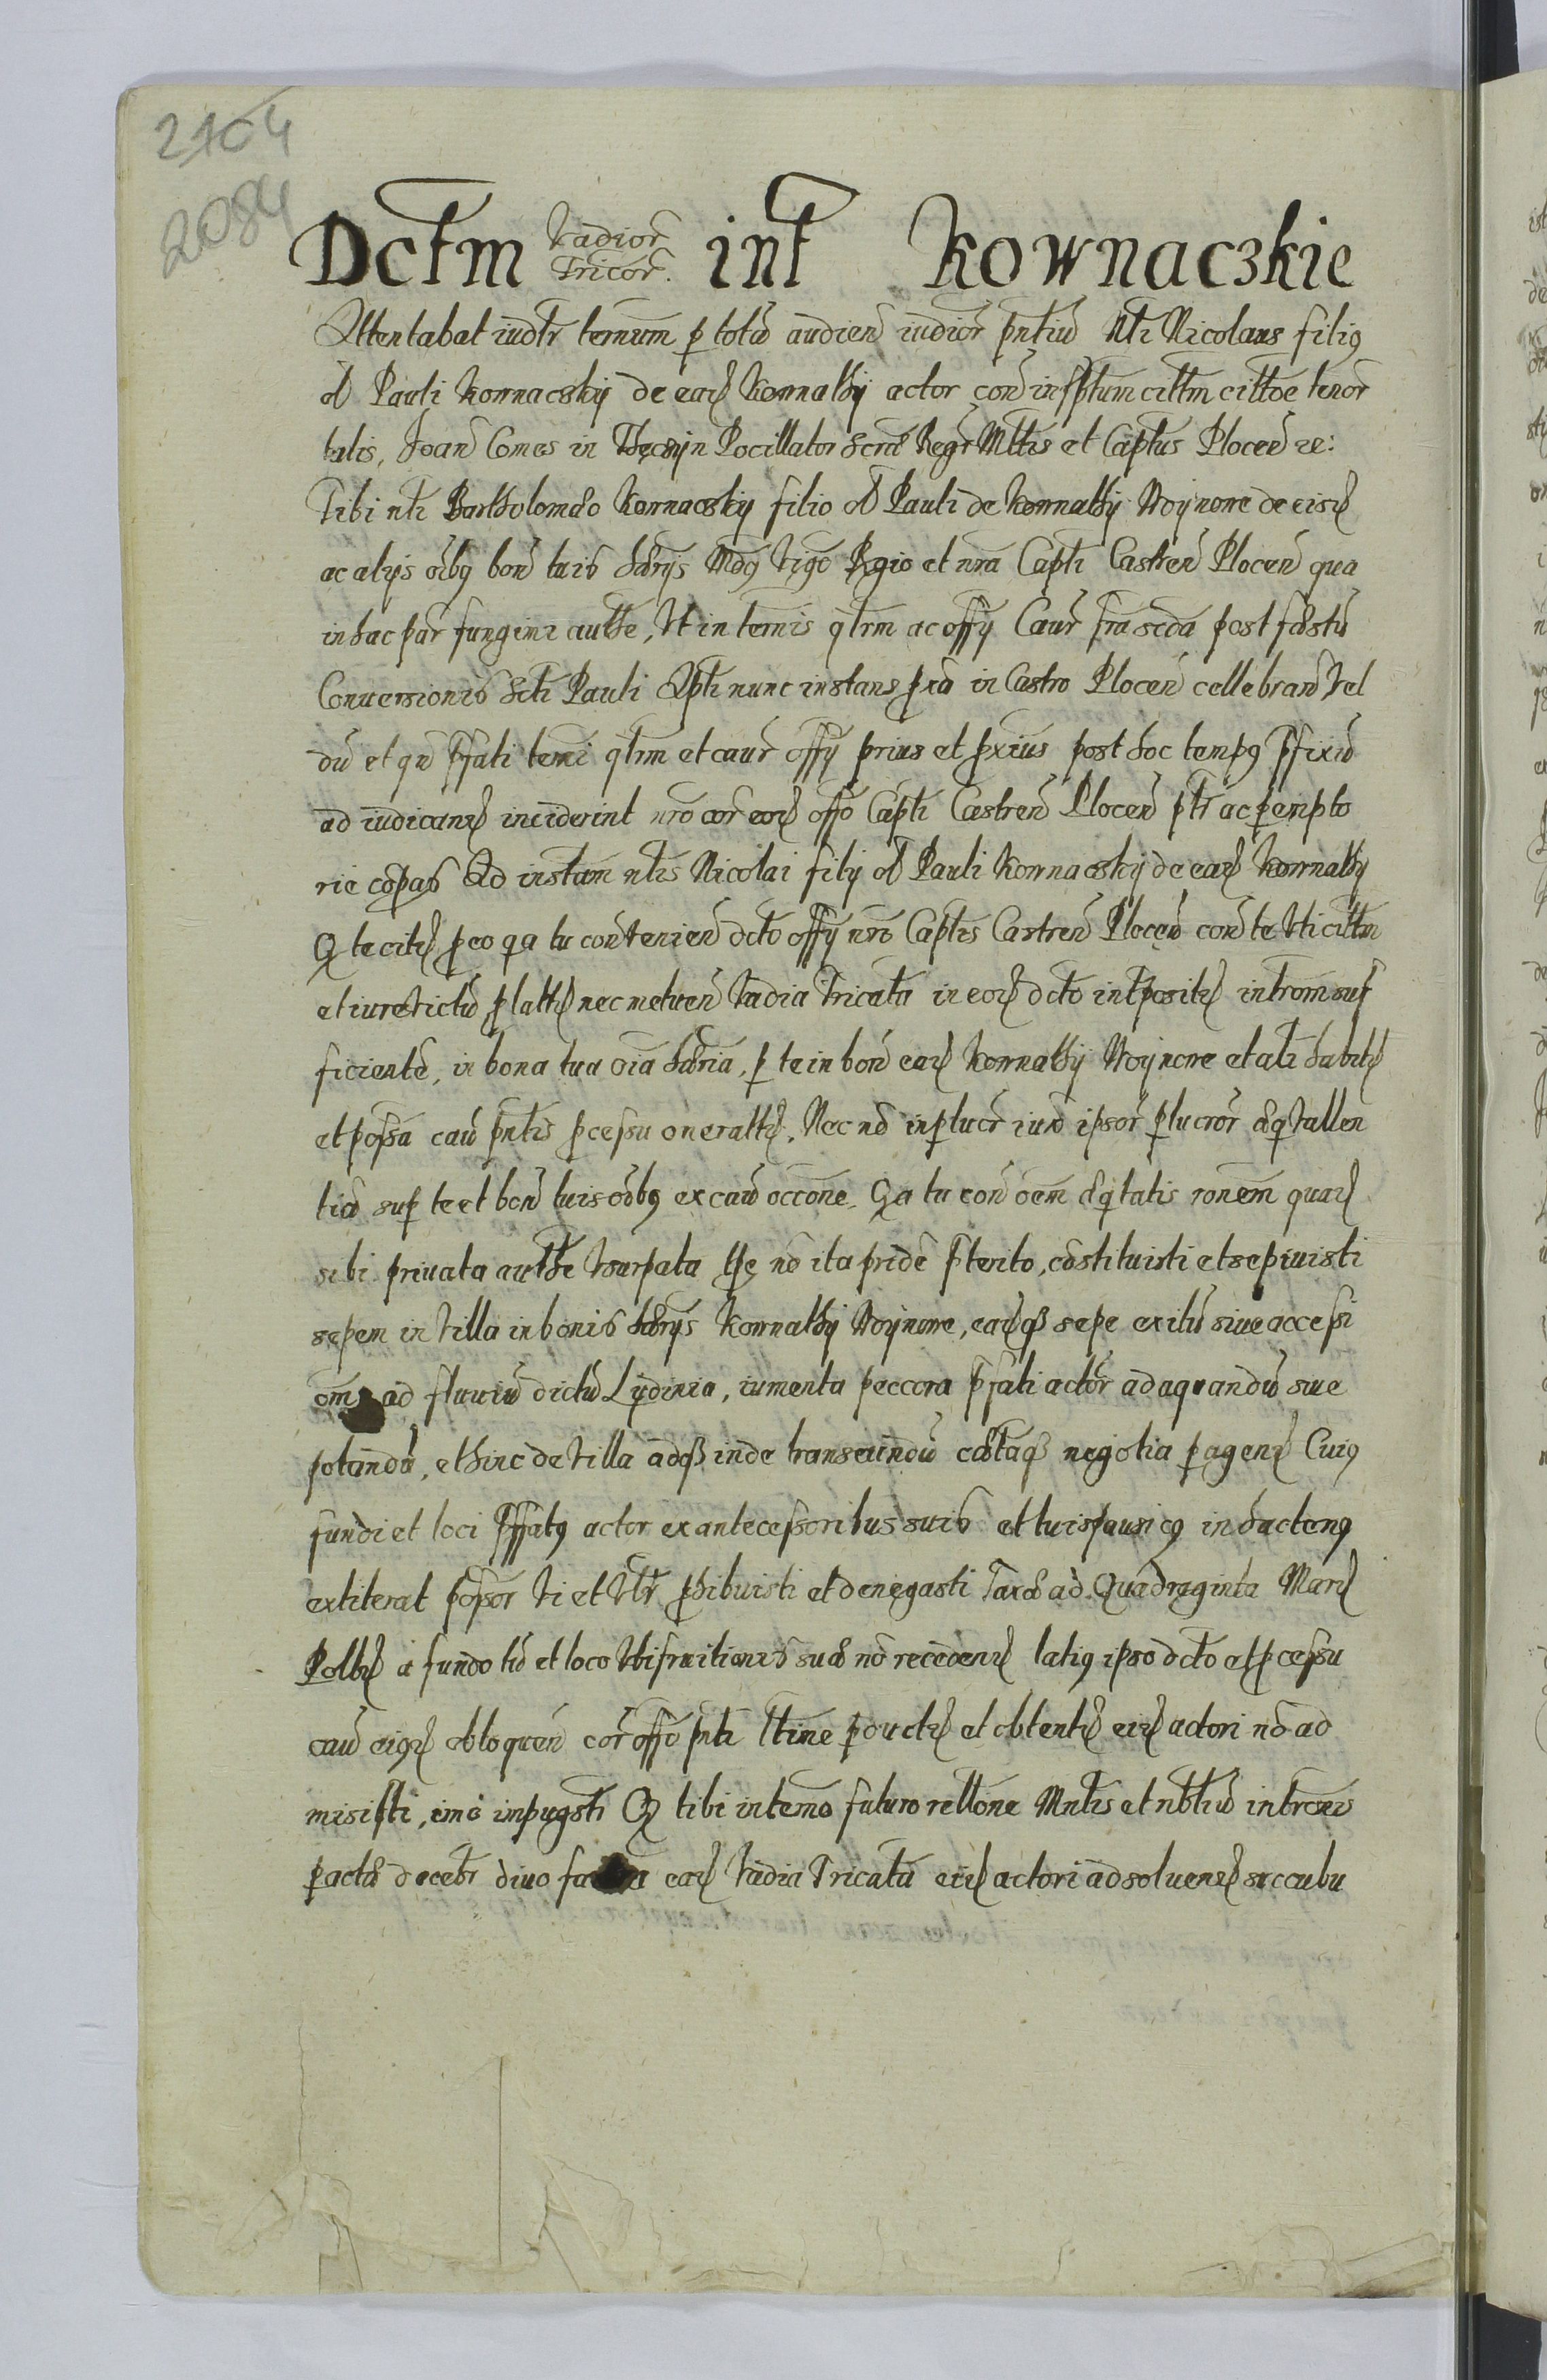 2104
2084
Dctm Vadior int Kownaczkie
Tricor.
Attentabat iudtr ternum p totu audien iudior pntiu Ntl Nicolaus filig
ol Pauli Kownaczkij de eade Kownathij actor con insptum cittm cittoe tenor
talis, Joan Comes in Theczijn Pocillator Scrae Regr Mttis et Captus Plocen ze:
Tibi ntl Bartholomeo Kownaczkij filio ol Pauli de Kownathij Woijnowe de eisd
ac alijs oibg bon tuis haeriis Mdg Vigo Rgio et nra Capti Castren Plocen qua
in hac par fungimr authe, Vt in ternis qtrm ac offij Caur fra scda post festu
Conuersionis Scti Pauli Apti nunc instans pxa in Castro Plocen cellebran Vel
du et qn pfati terni qtrm et caur offij prius et pxius post hoc tempg pfixu
ad iudicand inciderint nro cor eod offo Capti Castren Plocen ptr ac pempto
rie copas Ad instam ntis Nicolai filij ol Pauli Kownaczkij de ead Kownathij
Q te citt p eo qa tu con Venien dcto offij nri Captis Castren Plocen con te Vti cittm
et iure Victu platt nec metuen Vadia Tricata in eod dcto intposit introm suf
ficiente, in bona tua oia haeria, p te in bon ead Kownathij Woijnowe et ali habit
et possa cau pntis pcessu oneratt. Nec no in plucr iud ipsor plucror aeqVallen
tia sup te et bon tuis oibg ex cau occone. Qa tu con oem aeqtatis ronem quad
sibi priuata authe Vsurpata tpe no ita pride pterito, costituisti et sepiuisti
sepem in Villa in bonis haeriis Kownathij Woijnowe, eadq sepe exitu siue accessi
om ad fluuiu dictu Lydinia, iumenta peccora pfati actor ad aquandu siue
potandu, et hinc de Villa adq inde transeundu caetaq negotia pagend Cuig
fundi et loci pffatg actor ex antecessoribus suis et tuis pausicg in hacteng
extiterat possor Vi et Vtr phibuisti et denegasti Taxae ad Quadraginta Marc
Poll a fundo tu et loco Vtifruitionis suae no recedend latig ipso dcto et pcessu
cau eigd obloquen cor offo pnti ltime pduct et obtent eid actori no ad
misisti, imo impugsti Q tibi in termo futuro rellone Mntis et nbtiu introis
pactae docebr diuo ead Vadia Tricata eid actori ad soluend succubu